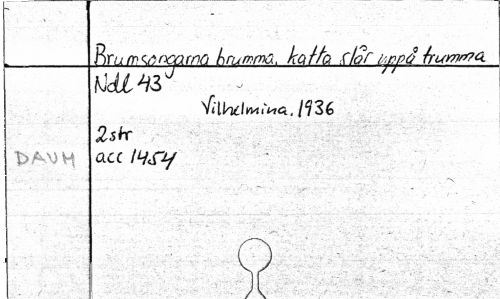 Brumsongarna brumma, katta slår uppå trumma
Ndl 43
Vilhelmina. 1936
2 str
DAUM acc 1454